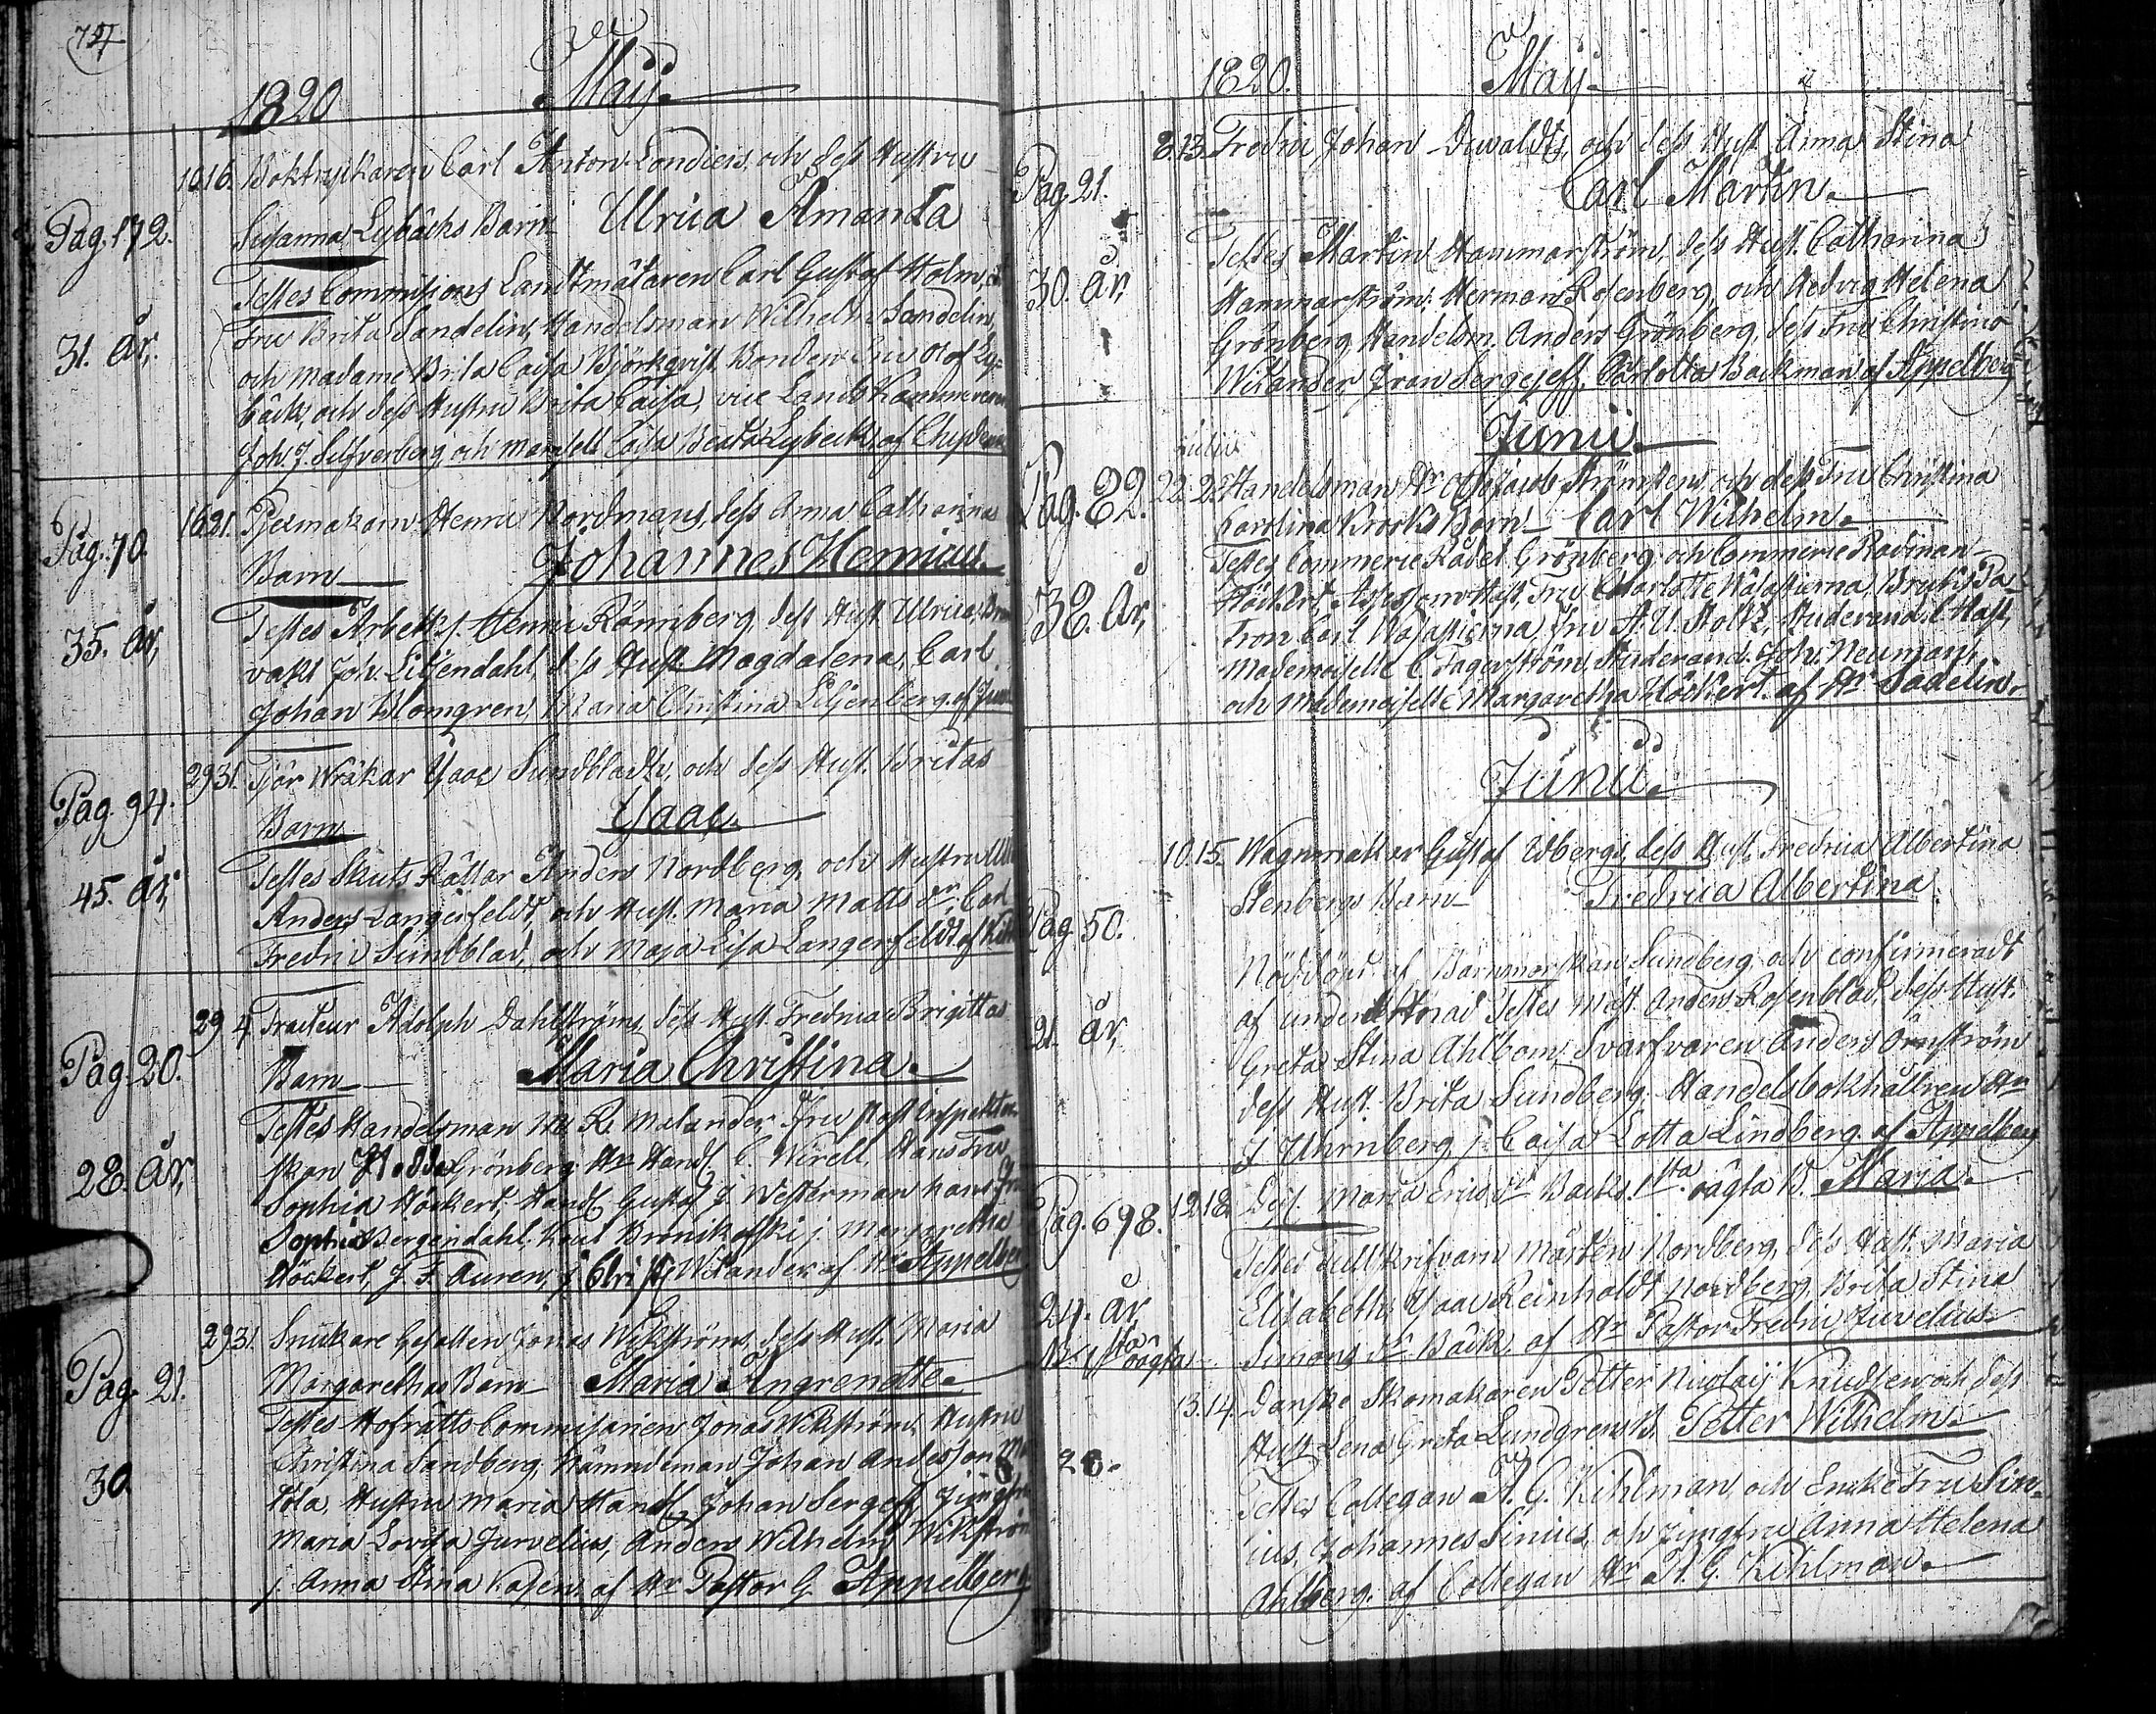 1820 Maij
Pag. 172. 10 16. Boktryckaren Carl Anton Londiers, och dess Hustru
Susanna Lybäcks Barn Ulrica Amanda
31. år, Testes Commissions Landtmätaren Carl Gustaf Holm,
Fru Brita Sandelin, Handelsman Wilhelm Sandelin,
och Madame Brita Caisa Björkqvist, Bonden Eric Olof Ly=
bäck, och dess Hustru Brita Caisa, vice Lands Kammereraren
Joh. J. Silfverberg, och Mamsell Caisa Beata Lybeck, af Chydenius
Pag. 70. 16 21. Henric Nordmans, dess Anna Catharinas
Barn Johannes Henricus
35. år, Testes Arbetsk. Henric Rönnberg, dess Hust. Ulrica,
vakt Joh. Liljendahl, dess Hust Magdalena, Carl
Johan Blomgren, Maria Christina Liljenberg. af
Pag. 94. 29 31. Tjär Wräkar Ysaac Sundbladhs, och dess Hust. Britas
Barn Ysaac
45. år, Testes Skuts Rättar Anders Nordberg, och Hustru
Anders Langerfeldt, och Hust. Maria Matts dr, Carl
Fredric Sundblad, och Maja Lisa Langerfeldt. af
Pag. 20. 29 4. Tracteur Adolph Dahlströms, dess Hust. Fredrica Brigittas
Barn Maria Christina
28. år, Testes Handelsman Hr R. Malander, Fru Post Inspektor
skan Grönberg, Hr Handl. C. Wirell, Hans Fru
Sophia Höckert, Handl. Gustaf J. Westerman hans Fru
Sophia Bergendahl, Knut Bronikofski j. Margaretha
Höckert, J. F. Auren, j. Christ. Wilander af Hr Appelberg
Pag. 21. 29 31. Snickare Gesällen Jonas Wikströms, dess Hust. Maria
Margarethas Barn Maria Angrenette
30 Testes Hofrätts Commissarien Jonas Wikström, Hustru
Christina Sandberg, Nämndeman Johan Andersson
tola, Hustru Maria Handl. Johan Sergeeff Jungfru
Maria Lovisa Jurvelius, Anders Wilhelm Wikström
j. Anna Stina af Hr Pastor G. Appelberg
1820. Maij
Pag. 21. 8. 13. Fredric Johan Dewaldts, och dess Hust. Anna Stina
Carl Martin
30. år, Testes Martin Hammarström, dess Hust. Catharina
Hammarström, Herman Rosenberg, och Hedvig Helena
Grönberg, Handelsm. Anders Grönberg, dess Fru Christina
Wilander, Ivan Sergejeff, Carlotta Backman af Appelberg
Junii
Julii
Pag. 82. 22. 2. Handelsman Hr Jacob Strömstens, och dess Fru Christina
Carolina Krooks Barn Carl Wilhelm
32. år, Testes Commerce Rådet Grönberg och Commerce Rådinnan
Höckert, Assessorn Hast, Fru Charlotte Wasastjerna, Bruks Pa
tron Carl Wasastjerna, Fru A. U. Stoltz, Studerand. C Hast,
Mademoiselle C. Fagerström, Studerand. Joh. Neuman,
och Mademoiselle Margaretha Höckert. af Hr Sadelin.
Junii
Pag. 50. 10. 15. Wagnmakar Gustaf Edbergs, dess Hust. Fredrica Albertina
Stenbergs Barn Fredrica Albertina
Nöddöpt af Barnmorskan Sundberg, och confirmeradt
21. år, af Testes Mäst. Anders Rosenblad, dess Hust.
Greta Stina Ahlbom, Svarfvaren Anders Örnström
dess Hust. Brita Sundberg, Handelsbokhållren Hr
J Uhrnberg, j. Caisa Lotta Lindberg. af Appelberg
Pag. 698. 12 18. Maria Ericsdr Backs. 1sta oägta B. Maria
Testes Tullskrifvarn Mårten Nordberg, dess Hust. Maria
24. år, Elisabeth, Ysaac Reinholdt Nordberg, Brita Stina
B. 1sta oägta Simons dr Bäck, af Hr Pastor Fredric Jurvelius
13. 14. Danske Skomakaren Petter Nicolaij Knudsen och dess
Hust. Lena Greta Lundgrens B. Petter Wilhelm
28. Testes Collegan A. G. Kihlman, och Enke Fru Sini=
ius, Johannes Sinius, och Jungfru Anna Helena
Ahlberg. af Collegan Hr A. G. Kihlman.